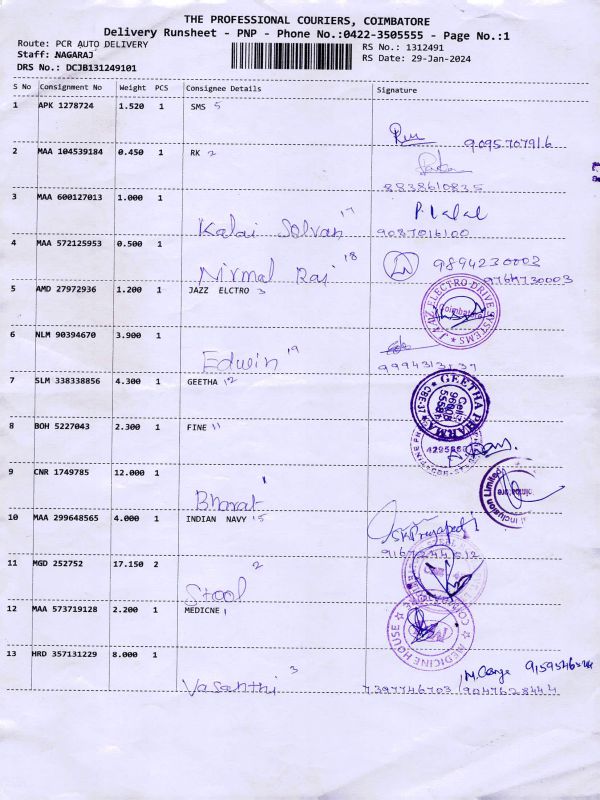 THE PROFESSIONAL COURIERS, COIMBATORE
Delivery Runsheet - PNP - Phone No.:0422-3505555 - Page No.:1
Route: PCR AUTO DELIVERY RS No.: 1312491
Staff: NAGARAJ RS Date: 29-Jan-2024
DRS No.: DCJB131249101
S No Consignment No Weight PCS Consignee Details Signature
1 APK 1278724 1.520 1 SMS 5
9095707916
2 MAA 104539184 0.450 1 RK 2
8838610835
3 MAA 600127013 1.000 1
Kalai Selvan 17 9087016100
4 MAA 572125953 0.500 1 9894230003
Nirmal Raj 18 9764730003
5 AMD 27972936 1.200 1 JAZZ ELCTRO 3
ELECTRO DRIVE SYSTEMS
Coimbatore
6 NLM 90394670 3.900 1
Edwin 19
7 SLM 338338856 4.300 1 GEETHA 12
GEETHA PHARMA
CBE-37
8 BOH 5227043 2.300 1 FINE 11
9 CNR 1749785 12.000 1
Bharat 1
Inclusion Limited
10 MAA 299648565 4.000 1 INDIAN NAVY 15
11 MGD 252752 17.150 2
Stool 2
12 MAA 573719128 2.200 1 MEDICNE 1
MEDICINE HOUSE
13 HRD 357131229 8.000 1
Vasanthi 3 7397746703 / 9047628444